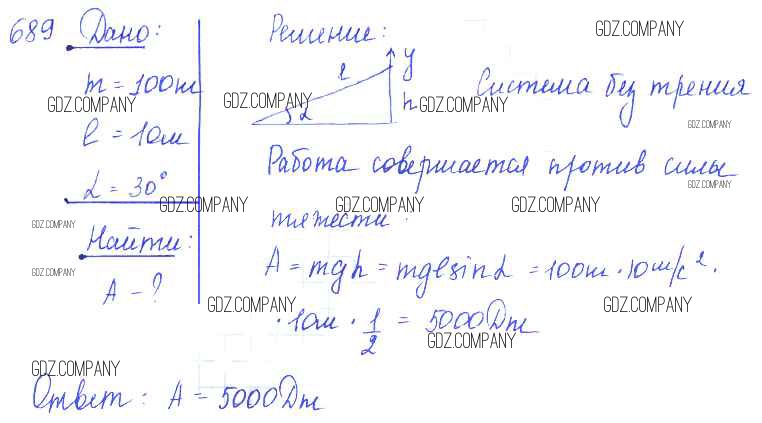 689 Дано:
m = 100т
l = 10м
α = 30°
Найти:
A - ?
Решение:
l
y
α
h
Система без трения
Работа совершается против силы
тяжести.
A = mgh = mglsinα = 100т · 10м/с².
· 10м · 1/2 = 5000Дж
Ответ: A = 5000Дж
GDZ.COMPANY
GDZ.COMPANY
GDZ.COMPANY
GDZ.COMPANY
GDZ.COMPANY
GDZ.COMPANY
GDZ.COMPANY
GDZ.COMPANY
GDZ.COMPANY
GDZ.COMPANY
GDZ.COMPANY
GDZ.COMPANY
GDZ.COMPANY
GDZ.COMPANY
GDZ.COMPANY
GDZ.COMPANY